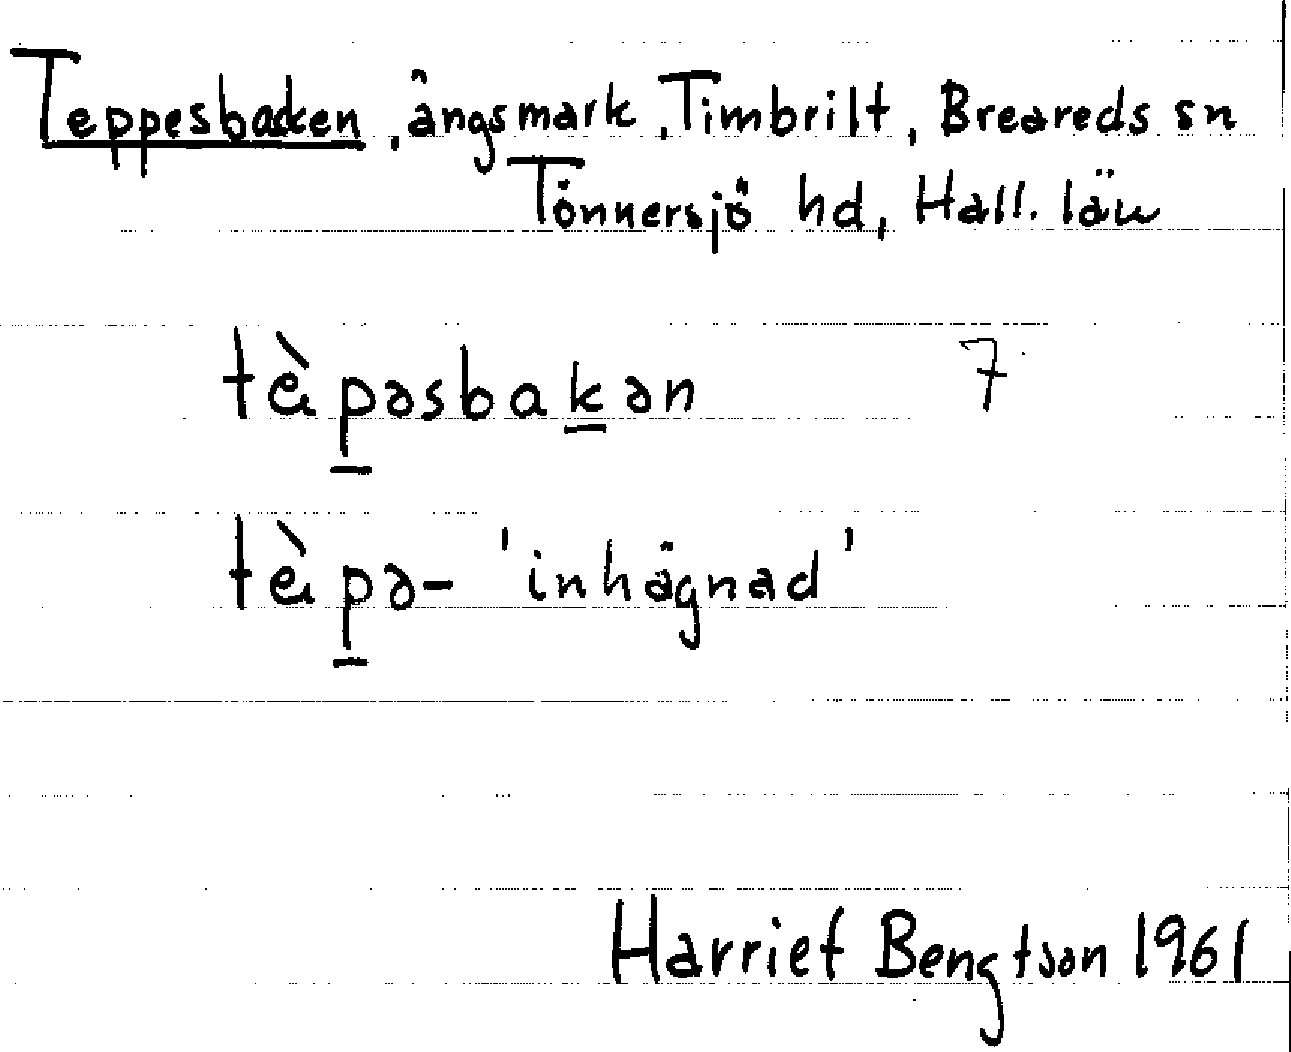 Teppesbacken, ängsmark, Timbrilt, Breareds sn
Tönnersjö hd, Hall. län
tè̀pəsbakən 7
tè̀pə- 'inhägnad'
Harriet Bengtson 1961